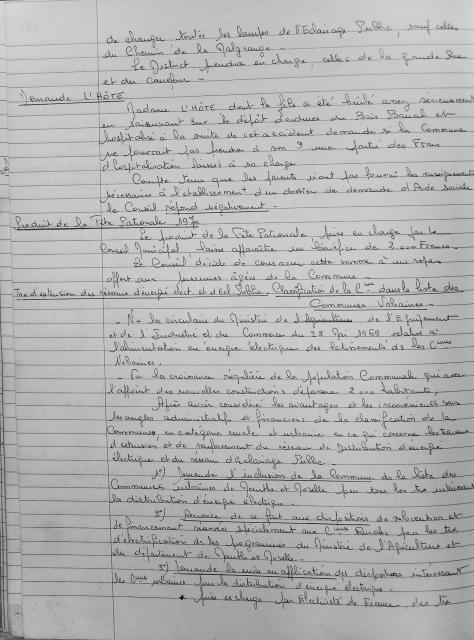 de changer toutes les lampes de l'Eclairage Public, sauf celles
du Chemin de la Malgrange.
Le District prendra en charge, celles de la grande Rue
et du Carrefour -
Demande L'HÔTE
Madame L'HÔTE dont le fils a été brûlé assez sérieusement
en saisissant sur le dépôt d'ordures du Bois Banal et
hospitalisé à la suite de cet accident demande si la Commune
ne pourrait pas prendre à son une partie des Frais
d'hospitalisation laissés à sa charge
Compte tenu que les parents n'ont pas fourni les renseignements
nécessaires à l'établissement d'un dossier de demande d'Aide sociale
le Conseil répond négativement.
Produit de la Fête Patronale 1970
Le produit de la Fête Patronale prise en charge par le
Conseil Municipal laisse apparaître un bénéfice de 2.000 Francs.
Le Conseil décide de consacrer cette somme à un repas
offert aux personnes âgées de la Commune
Trx d'extension des réseaux d'énergie élect. et d'Ecl. Public - Classification de la Cne dans la liste des
Communes Urbaines.
- Vu la circulaire du Ministère de l'Agriculture de l'Equipement
et de l'Industrie et du Commerce du 28 Mai 1969 relative à
l'alimentation en énergie électrique des lotissements des Cnes
Urbaines.
Vu la croissance régulière de la population Communale qui avec
l'apport des nouvelles constructions dépassera 2 000 habitants,
Après avoir considéré les avantages et les inconvénients sous
les angles administratifs et financiers de la classification de la
Communes en catégorie rurale et urbaine en ce qui concerne les travaux
d'extension et de renforcement du réseau de distribution d'énergie
électrique et du réseau d'Eclairage Public -
1°) Demande l'inclusion de la Commune de la liste des
Communes urbaines de Meurthe et Moselle pour tous les trx intéressant
la distribution d'énergie électrique -
2°) Renonce de ce fait aux dispositions de subvention et
de financement réservées spécialement aux Cnes Rurales pour les trx
d'électrification de les programmes du Ministère de l'Agriculture et
du département de Meurthe et Moselle.
3°) Demande la mise en application des dispositions intéressant
les Cnes urbaines pour la distribution d'énergie électrique.
prise en charge par Electricité de France, des trx